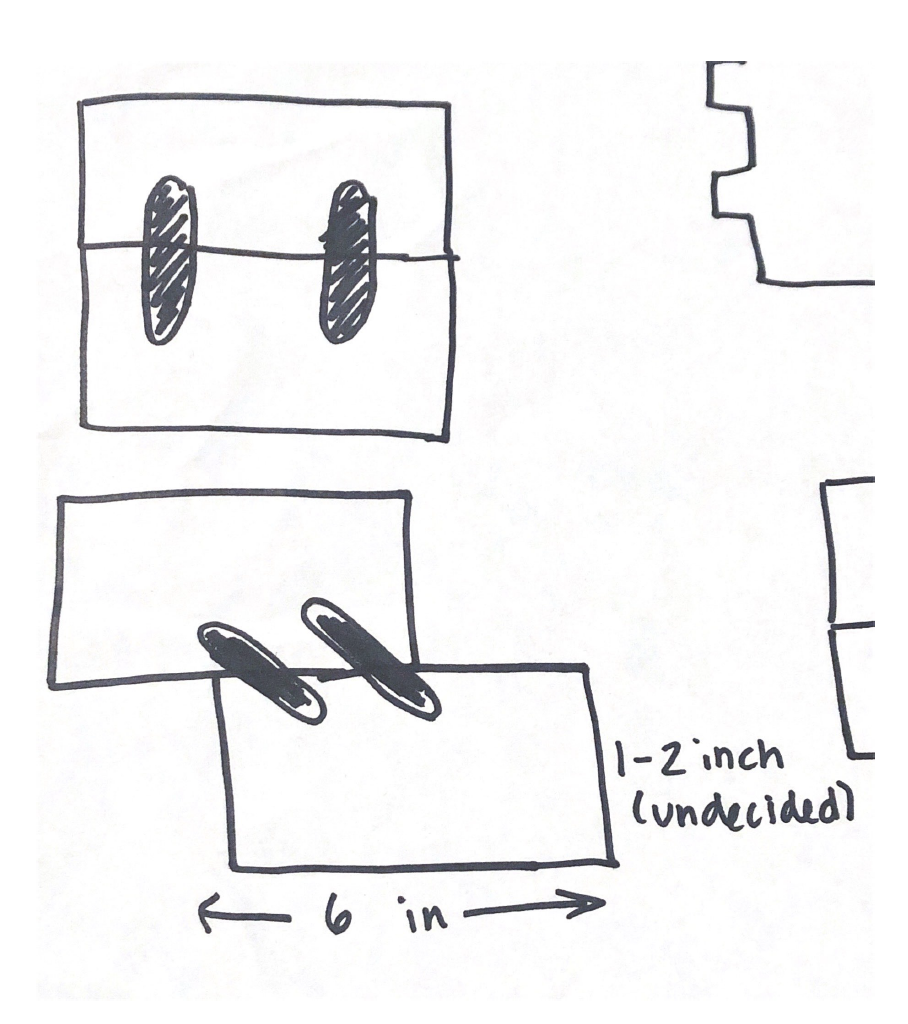 1-2 inch
(undecided)
6 in